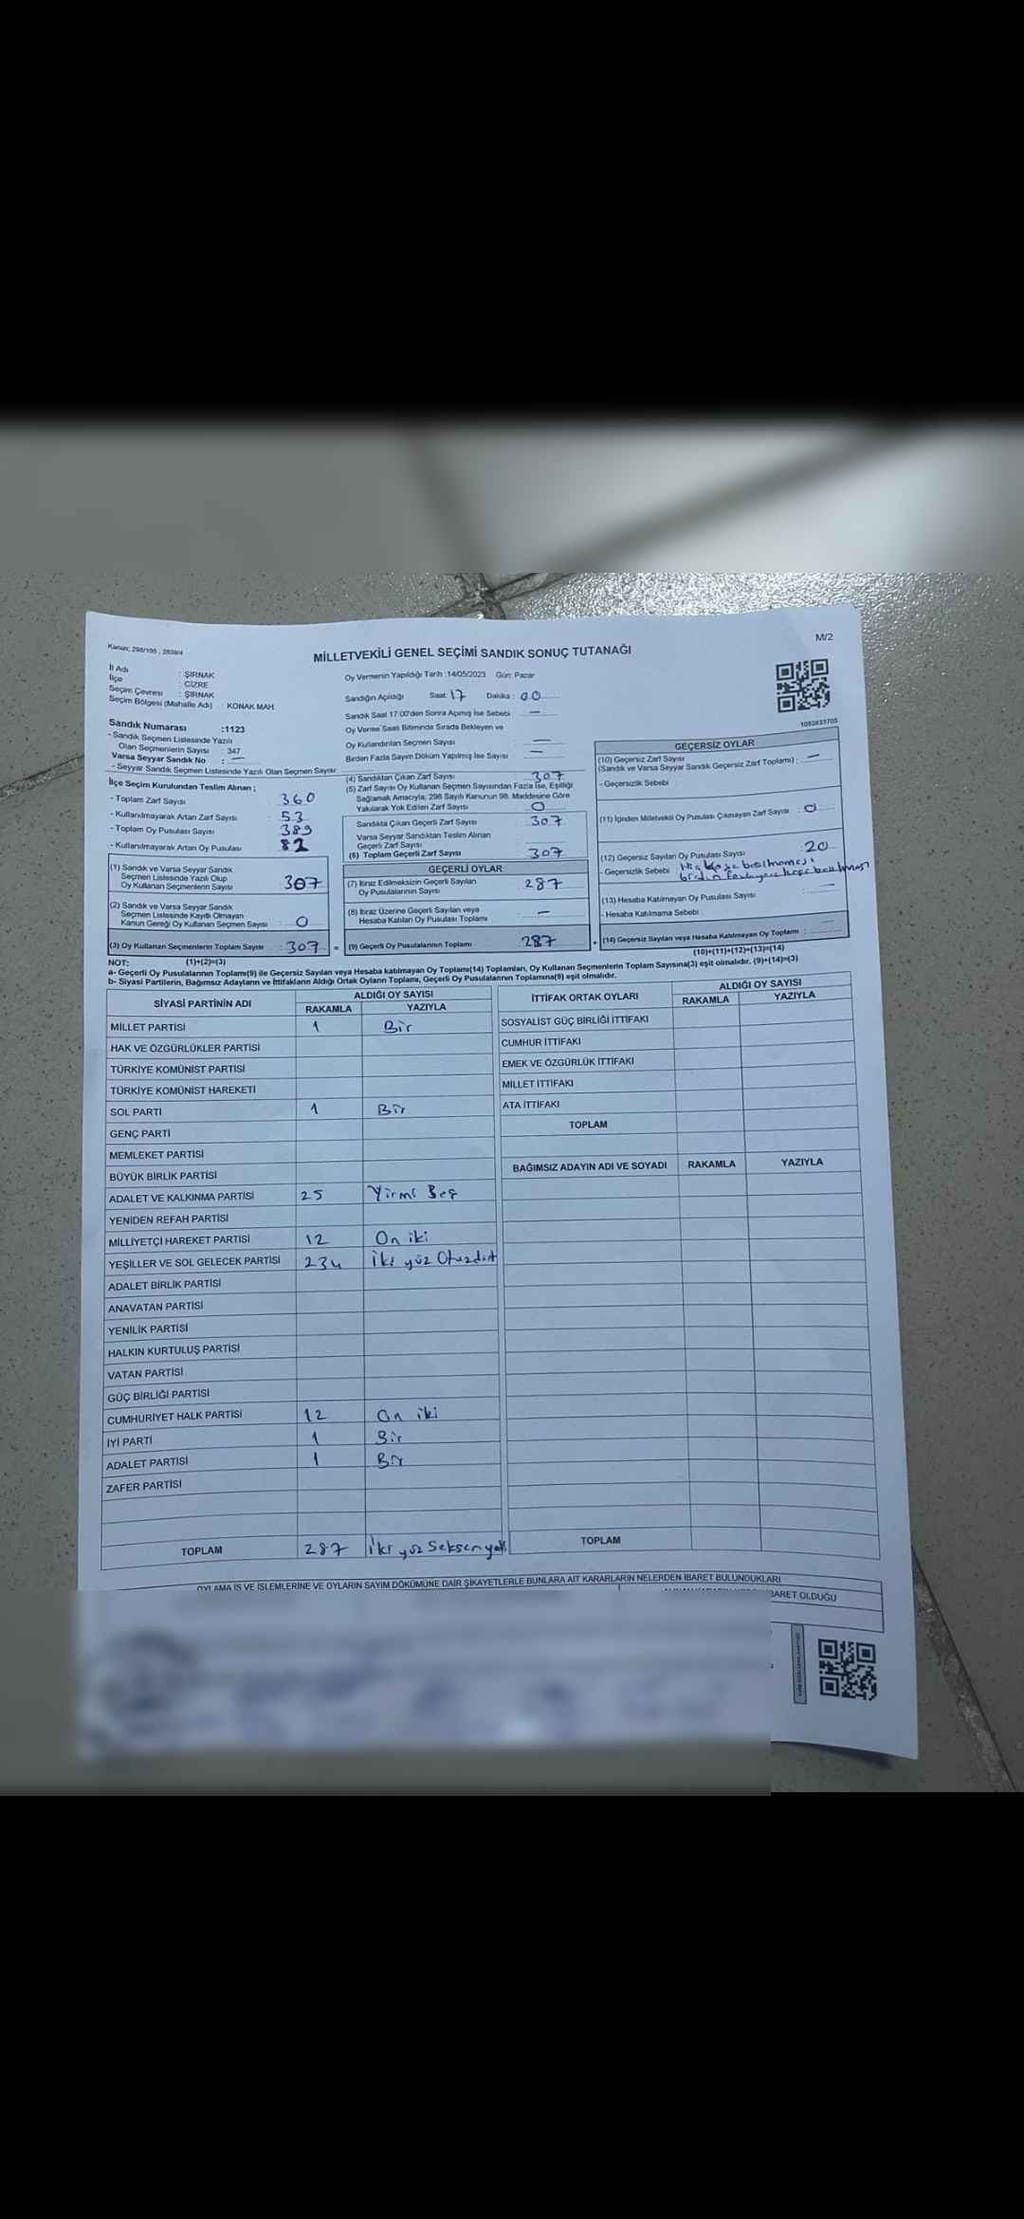 Kanun; 298/105 , 2839/4
M/2
MİLLETVEKİLİ GENEL SEÇİMİ SANDIK SONUÇ TUTANAĞI
İl Adı : ŞIRNAK
İlçe : CİZRE
Seçim Çevresi : ŞIRNAK
Seçim Bölgesi (Mahalle Adı) : KONAK MAH.
Oy Vermenin Yapıldığı Tarih :14/05/2023 Gün: Pazar
Sandığın Açıldığı Saat: 17 Dakika : 00
Sandık Saat 17.00'den Sonra Açımış İse Sebebi —
Oy Verme Saati Bitiminde Sırada Bekleyen ve
Oy Kullandırılan Seçmen Sayısı —
Birden Fazla Sayım Döküm Yapılmış İse Sayısı —
Sandık Numarası :1123
- Sandık Seçmen Listesinde Yazılı
Olan Seçmenlerin Sayısı : 347
Varsa Seyyar Sandık No : —
- Seyyar Sandık Seçmen Listesinde Yazılı Olan Seçmen Sayısı
İlçe Seçim Kurulundan Teslim Alınan ;
- Toplam Zarf Sayısı 360
- Kullanılmayarak Artan Zarf Sayısı 53
- Toplam Oy Pusulası Sayısı 389
- Kullanılmayarak Artan Oy Pusulası 82
(1) Sandık ve Varsa Seyyar Sandık
Seçmen Listesinde Yazılı Olup
Oy Kullanan Seçmenlerin Sayısı 307
(2) Sandık ve Varsa Seyyar Sandık
Seçmen Listesinde Kayıtlı Olmayan
Kanun Gereği Oy Kullanan Seçmen Sayısı 0
(3) Oy Kullanan Seçmenlerin Toplam Sayısı : 307 =
(4) Sandıktan Çıkan Zarf Sayısı 307
(5) Zarf Sayısı Oy Kullanan Seçmen Sayısından Fazla İse, Eşitliği
Sağlamak Amacıyla, 298 Sayılı Kanunun 98. Maddesine Göre
Yakılarak Yok Edilen Zarf Sayısı 0
Sandıkta Çıkan Geçerli Zarf Sayısı 307
Varsa Seyyar Sandıktan Teslim Alınan
Geçerli Zarf Sayısı
(6) Toplam Geçerli Zarf Sayısı 307
GEÇERLİ OYLAR
(7) İtiraz Edilmeksizin Geçerli Sayılan
Oy Pusulalarının Sayısı 287
(8) İtiraz Üzerine Geçerli Sayılan veya
Hesaba Katılan Oy Pusulası Toplamı —
(9) Geçerli Oy Pusulalarının Toplamı 287 +
1053833705
GEÇERSİZ OYLAR
(10) Geçersiz Zarf Sayısı
(Sandık ve Varsa Seyyar Sandık Geçersiz Zarf Toplamı) : —
- Geçersizlik Sebebi
(11) İçinden Milletvekili Oy Pusulası Çıkmayan Zarf Sayısı : 0
(12) Geçersiz Sayılan Oy Pusulası Sayısı : 20
- Geçersizlik Sebebi
(13) Hesaba Katılmayan Oy Pusulası Sayısı —
- Hesaba Katılmama Sebebi
(14) Geçersiz Sayılan veya Hesaba Katılmayan Oy Toplamı :
(10)+(11)+(12)+(13)=(14)
NOT: (1)+(2)=(3)
a- Geçerli Oy Pusulalarının Toplamı(9) ile Geçersiz Sayılan veya Hesaba katılmayan Oy Toplamı(14) Toplamları, Oy Kullanan Seçmenlerin Toplam Sayısına(3) eşit olmalıdır. (9)+(14)=(3)
b- Siyasi Partilerin, Bağımsız Adayların ve İttifakların Aldığı Ortak Oyların Toplamı, Geçerli Oy Pusulalarının Toplamına(9) eşit olmalıdır.
SİYASİ PARTİNİN ADI ALDIĞI OY SAYISI
RAKAMLA YAZIYLA
MİLLET PARTİSİ 1 Bir
HAK VE ÖZGÜRLÜKLER PARTİSİ
TÜRKİYE KOMÜNİST PARTİSİ
TÜRKİYE KOMÜNİST HAREKETİ
SOL PARTİ 1 Bir
GENÇ PARTİ
MEMLEKET PARTİSİ
BÜYÜK BİRLİK PARTİSİ
ADALET VE KALKINMA PARTİSİ 25 Yirmi Beş
YENİDEN REFAH PARTİSİ
MİLLİYETÇİ HAREKET PARTİSİ 12 On iki
YEŞİLLER VE SOL GELECEK PARTİSİ 234 İki yüz Otuzdört
ADALET BİRLİK PARTİSİ
ANAVATAN PARTİSİ
YENİLİK PARTİSİ
HALKIN KURTULUŞ PARTİSİ
VATAN PARTİSİ
GÜÇ BİRLİĞİ PARTİSİ
CUMHURİYET HALK PARTİSİ 12 On iki
İYİ PARTİ 1 Bir
ADALET PARTİSİ 1 Bir
ZAFER PARTİSİ
TOPLAM 287 İki yüz Seksen yedi
İTTİFAK ORTAK OYLARI ALDIĞI OY SAYISI
RAKAMLA YAZIYLA
SOSYALİST GÜÇ BİRLİĞİ İTTİFAKI
CUMHUR İTTİFAKI
EMEK VE ÖZGÜRLÜK İTTİFAKI
MİLLET İTTİFAKI
ATA İTTİFAKI
TOPLAM
BAĞIMSIZ ADAYIN ADI VE SOYADI RAKAMLA YAZIYLA
TOPLAM
OYLAMA İŞ VE İŞLEMLERİNE VE OYLARIN SAYIM DÖKÜMÜNE DAİR ŞİKAYETLERLE BUNLARA AİT KARARLARIN NELERDEN İBARET BULUNDUKLARI
BARET OLDUĞU